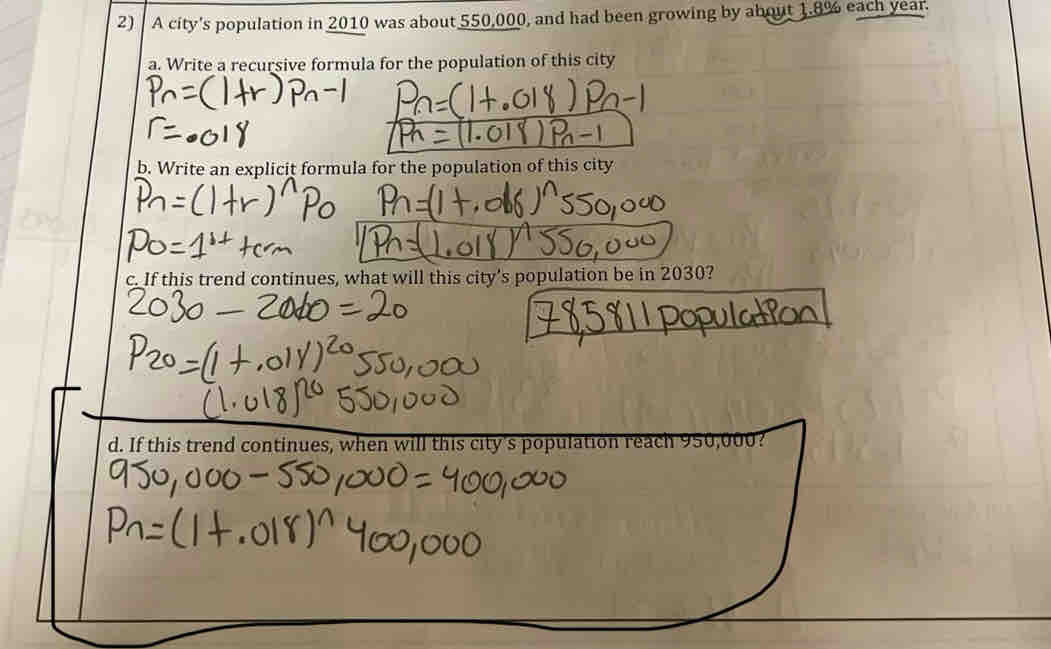 2) A city's population in 2010 was about 550,000, and had been growing by about 1.8% each year.
a. Write a recursive formula for the population of this city
Pn=(1+r)Pn-1 Pn=(1+.018)Pn-1
r=.018 Pn=(1.018)Pn-1
b. Write an explicit formula for the population of this city
Pn=(1+r)^n P0 Pn=(1+.018)^n 550,000
P0=1st term Pn=(1.018)^n 550,000
c. If this trend continues, what will this city's population be in 2030?
2030-2010=20 785811 population
P20=(1+.018)^20 550,000
(1.018)^20 550,000
d. If this trend continues, when will this city's population reach 950,000?
950,000-550,000=400,000
Pn=(1+.018)^n 400,000